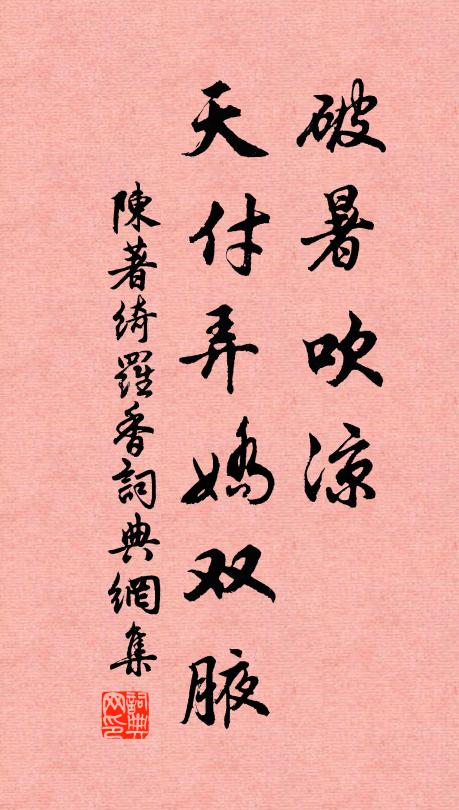 破暑吹涼
天付弄嬌双腋
陳著綺羅香詞典網集
詞典网印